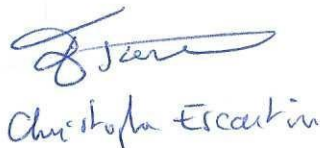 Christophe Escartin